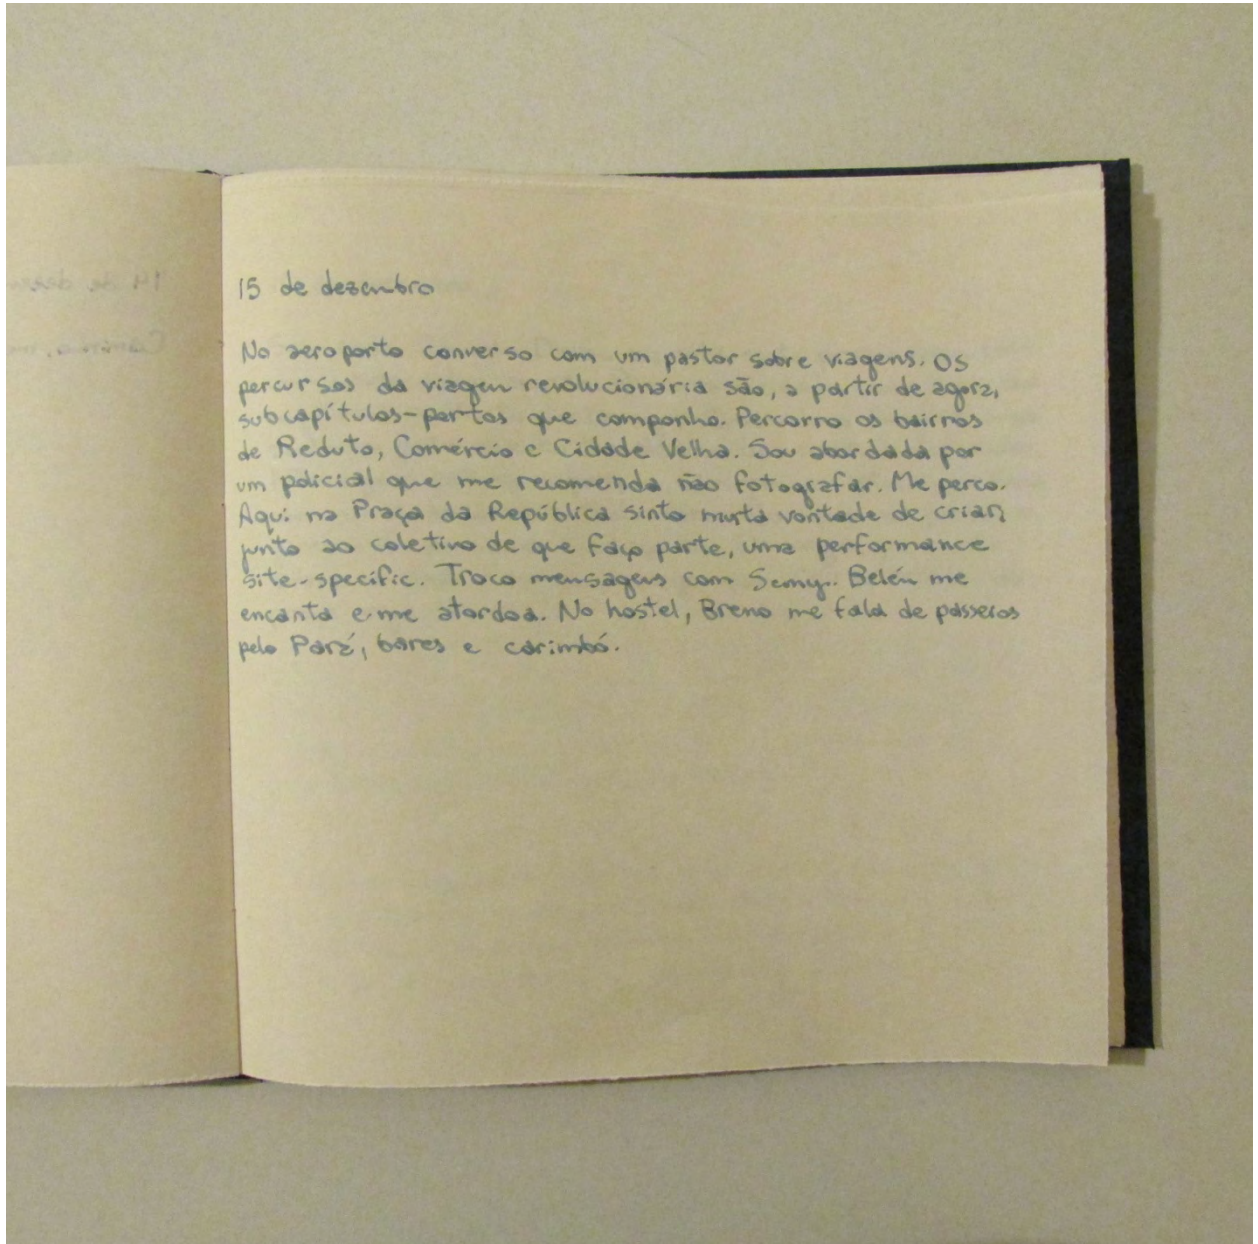 15 de dezembro
No aeroporto converso com um pastor sobre viagens. Os
percursos da viagem revolucionária são, a partir de agora,
subcapítulos-portos que componho. Percorro os bairros
de Reduto, Comércio e Cidade Velha. Sou abordada por
um policial que me recomenda não fotografar. Me perco.
Aqui na Praça da República sinto muita vontade de criar,
junto ao coletivo de que faço parte, uma performance
site-specific. Troco mensagens com Semy. Belém me
encanta e me atordoa. No hostel, Breno me fala de passeios
pelo Pará, bares e carimbó.